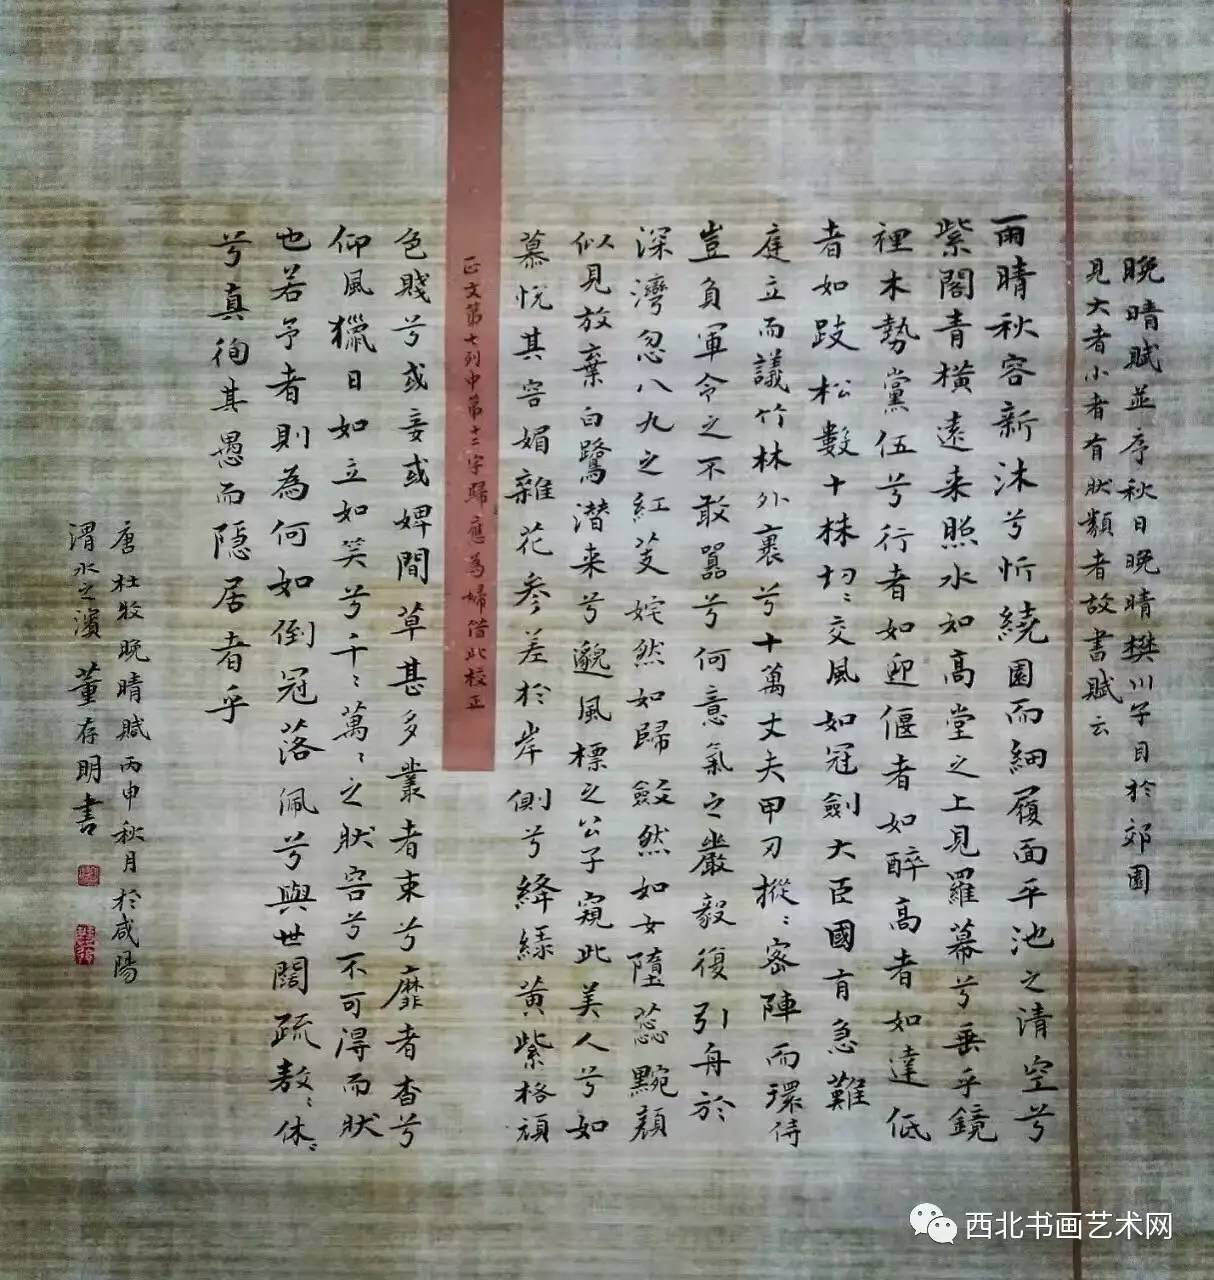 晚晴賦並序秋日晚晴樊川子目於郊園
見大者小者有狀類者故書賦云
雨晴秋容新沐兮忻繞園而細履面平池之清空兮
紫閣青橫遠来照水如高堂之上見羅幕兮垂乎鏡
裡木勢黨伍兮行者如迎偃者如醉高者如達低
者如跂松數十株切〻交風如冠劍大臣國有急難
庭立而議竹林外裹兮十萬丈夫甲刃摐〻密陣而環侍
豈負軍令之不敢囂兮何意氣之嚴毅復引舟於
深灣忽八九之紅芰姹然如歸斂然如女墮蕊黦顔
似見放棄白鷺潜来兮邈風標之公子窺此美人兮如
慕悅其容媚雜花參差於岸側兮絳綠黃紫格頑
正文第七列中第十二字歸應為婦借此校正
色賤兮或妾或婢間草甚多叢者束兮靡者杳兮
仰風獵日如立如笑兮千〻萬〻之狀容兮不可得而狀
也若予者則為何如倒冠落佩兮與世闊疏敖〻休〻
兮真徇其愚而隱居者乎
唐杜牧晚晴賦丙申秋月於咸陽
渭水之濱董存明書
西北书画艺术网